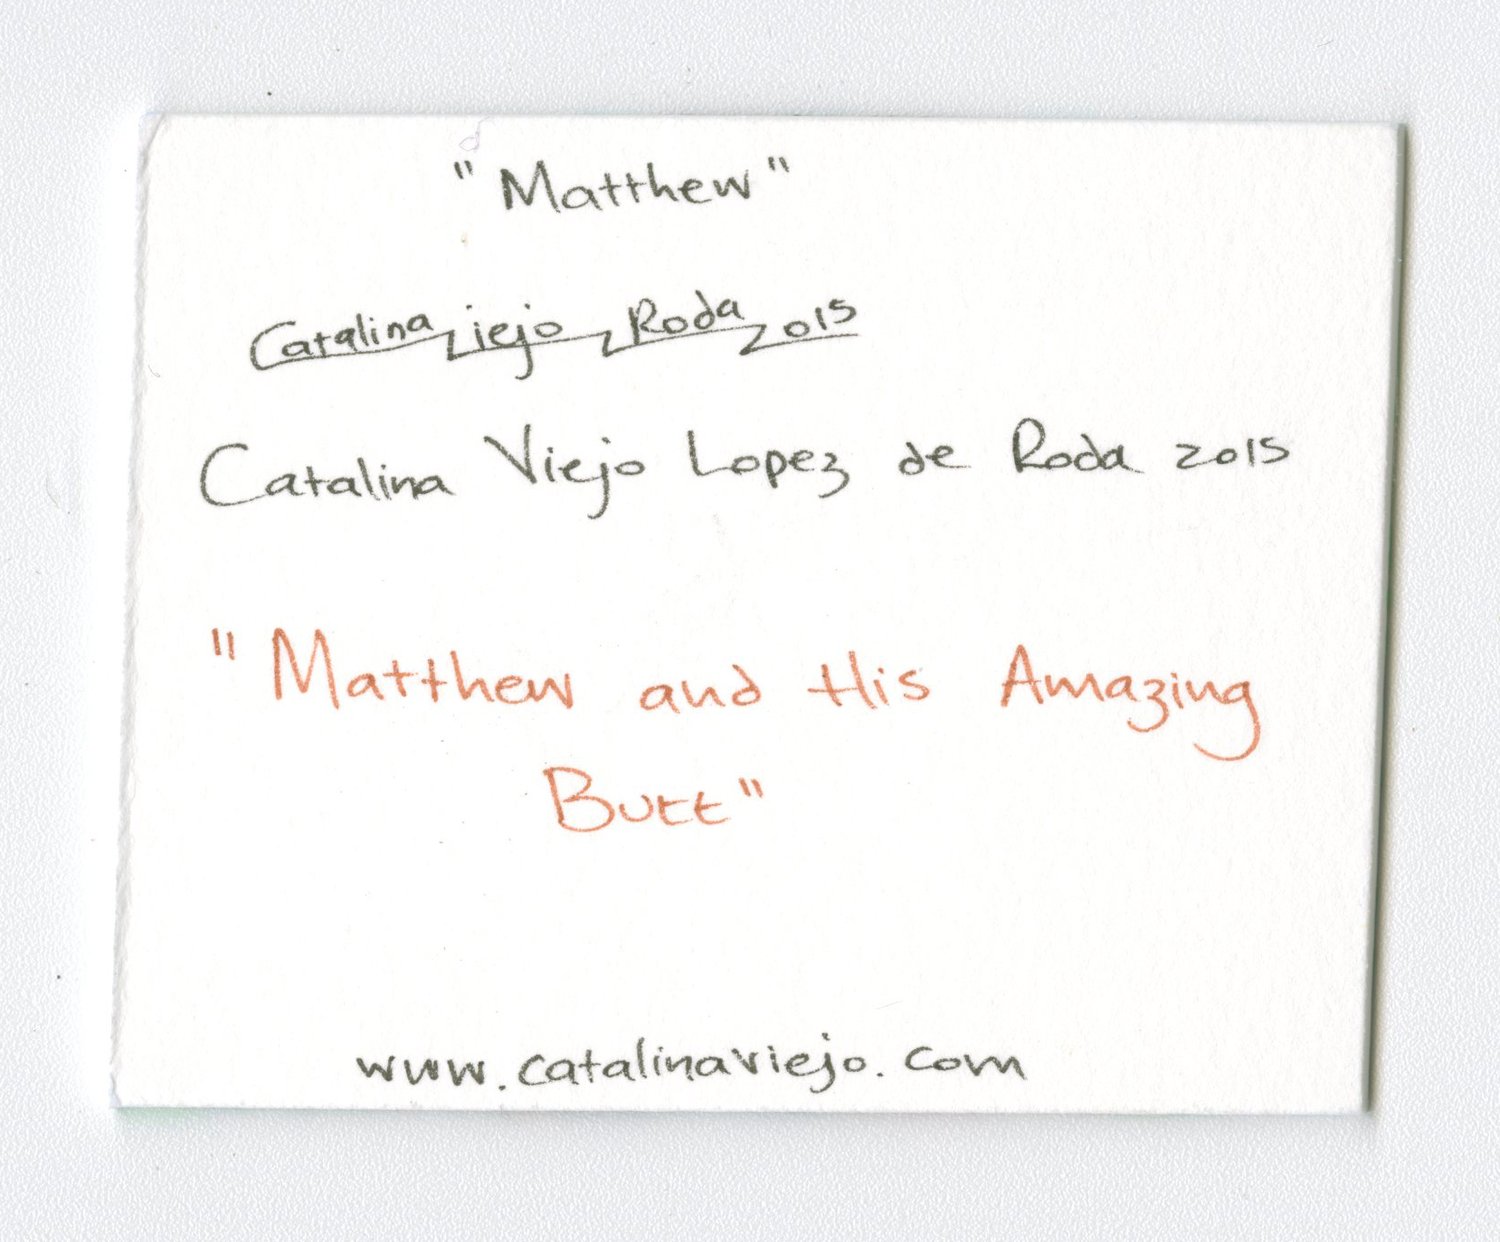 "Matthew"
Catalina Viejo Roda 2015
Catalina Viejo Lopez de Roda 2015
"Matthew and His Amazing
Butt"
www.catalinaviejo.com